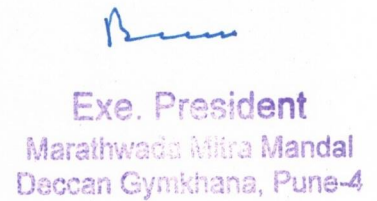 Exe. President
Marathwada Mitra Mandal
Deccan Gymkhana, Pune-4